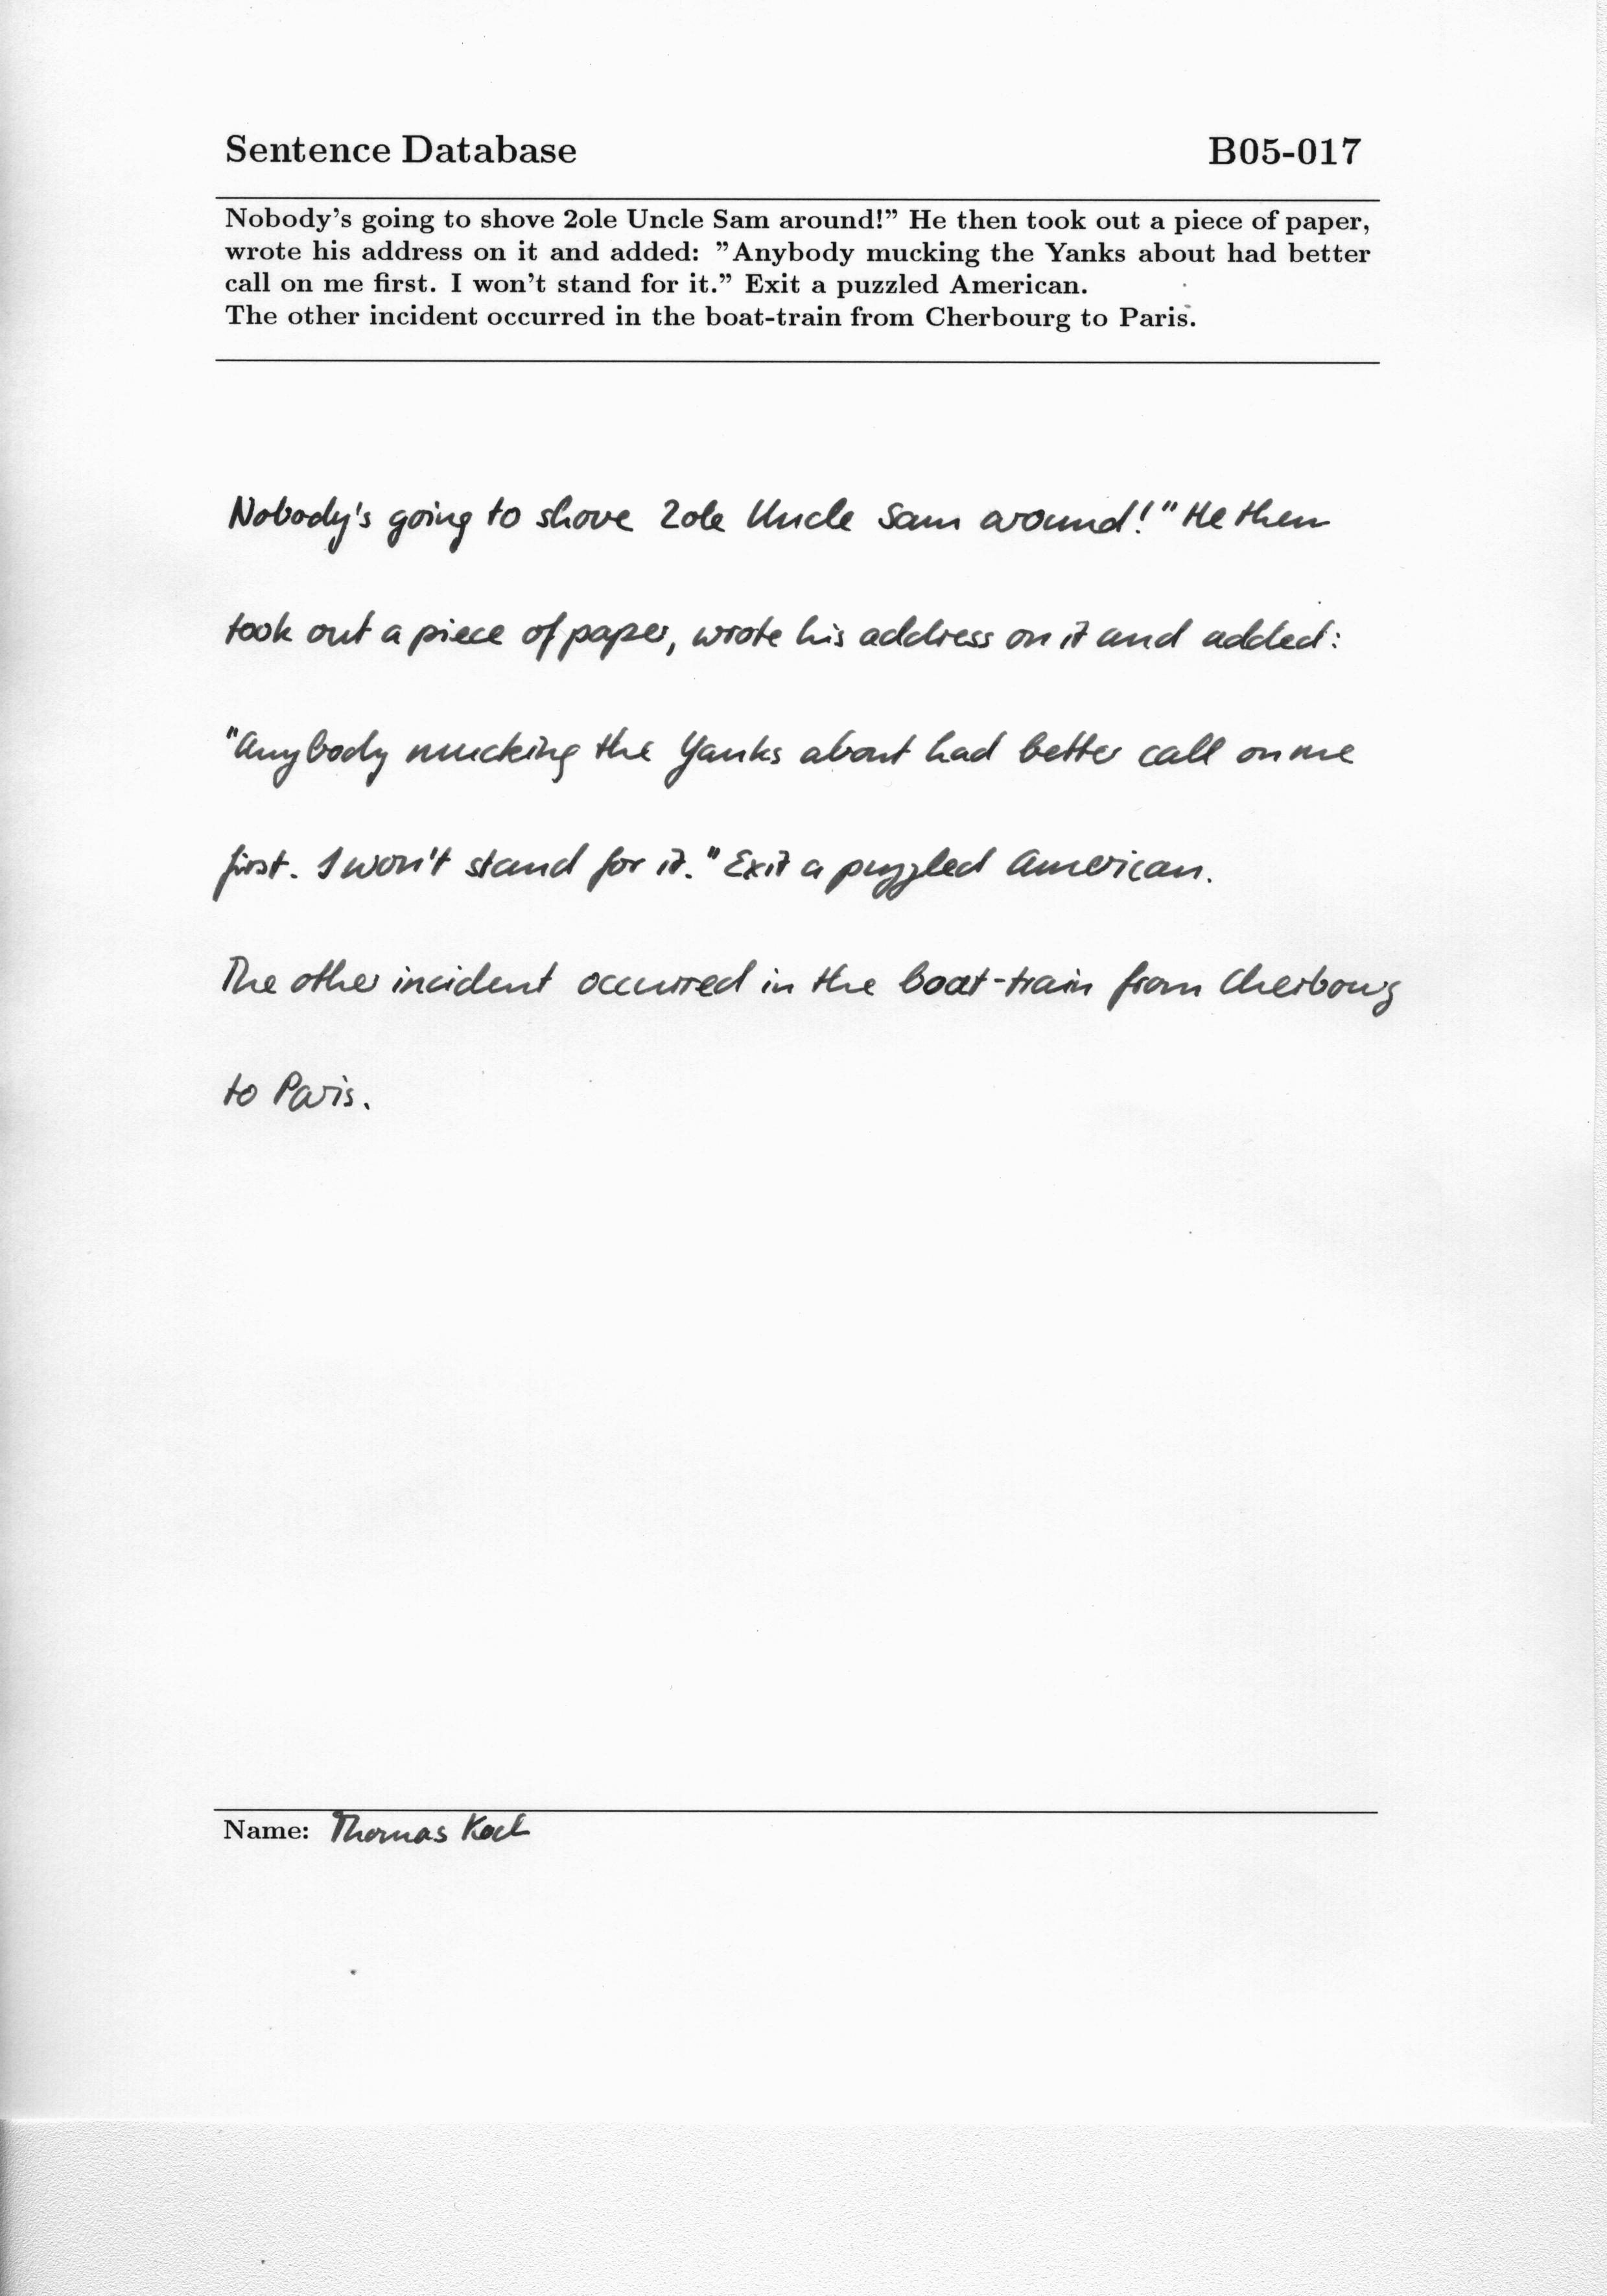 Sentence Database B05-017
Nobody's going to shove 2ole Uncle Sam around!" He then took out a piece of paper,
wrote his address on it and added: "Anybody mucking the Yanks about had better
call on me first. I won't stand for it." Exit a puzzled American.
The other incident occurred in the boat-train from Cherbourg to Paris.
Nobody's going to shove 2ole Uncle Sam around!" He then
took out a piece of paper, wrote his address on it and added:
"Anybody mucking the Yanks about had better call on me
first. I won't stand for it." Exit a puzzled American.
The other incident occurred in the boat-train from Cherbourg
to Paris.
Name: Thomas Koch